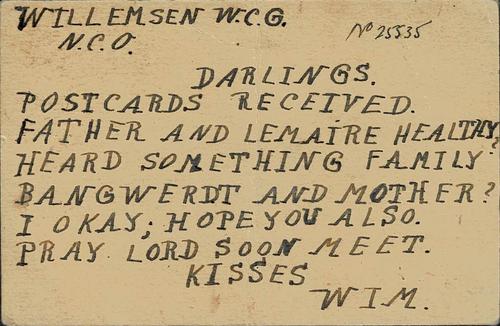 WILLEMSEN W.C.G.
No 25535
N.C.O.
DARLINGS.
POSTCARDS RECEIVED.
FATHER AND LEMAIRE HEALTHY?
HEARD SOMETHING FAMILY
BANGWERDT AND MOTHER?
I OKAY; HOPE YOU ALSO.
PRAY LORD SOON MEET.
KISSES
WIM.